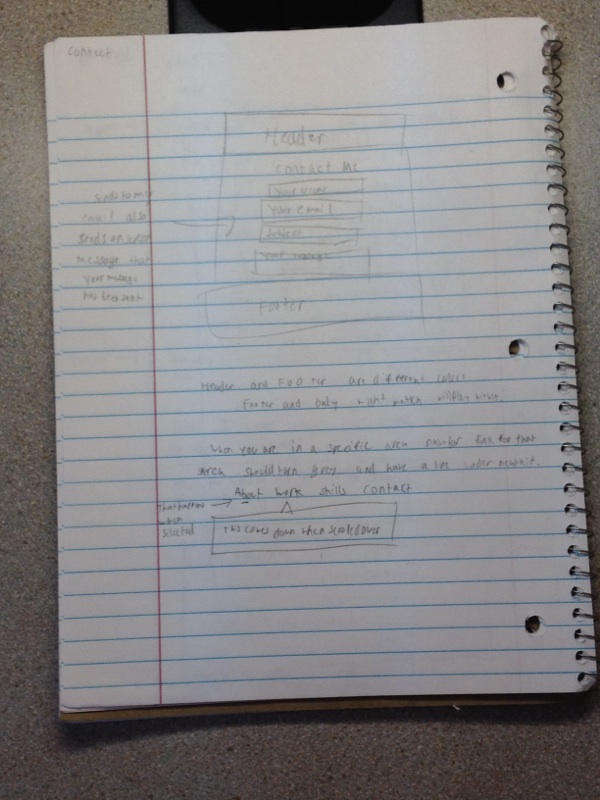 Contact
Header
Contact Me
Your Name
Your email
Subject
Your message
Footer
Sends to my
email also
sends an
message that
your message
has been sent
Header and Footer are different colors
Footer and body
When you are in a specific area for that
area should turn grey and have a line under
About Work Skills Contact
That happens
when
selected
This comes down when scrolled over